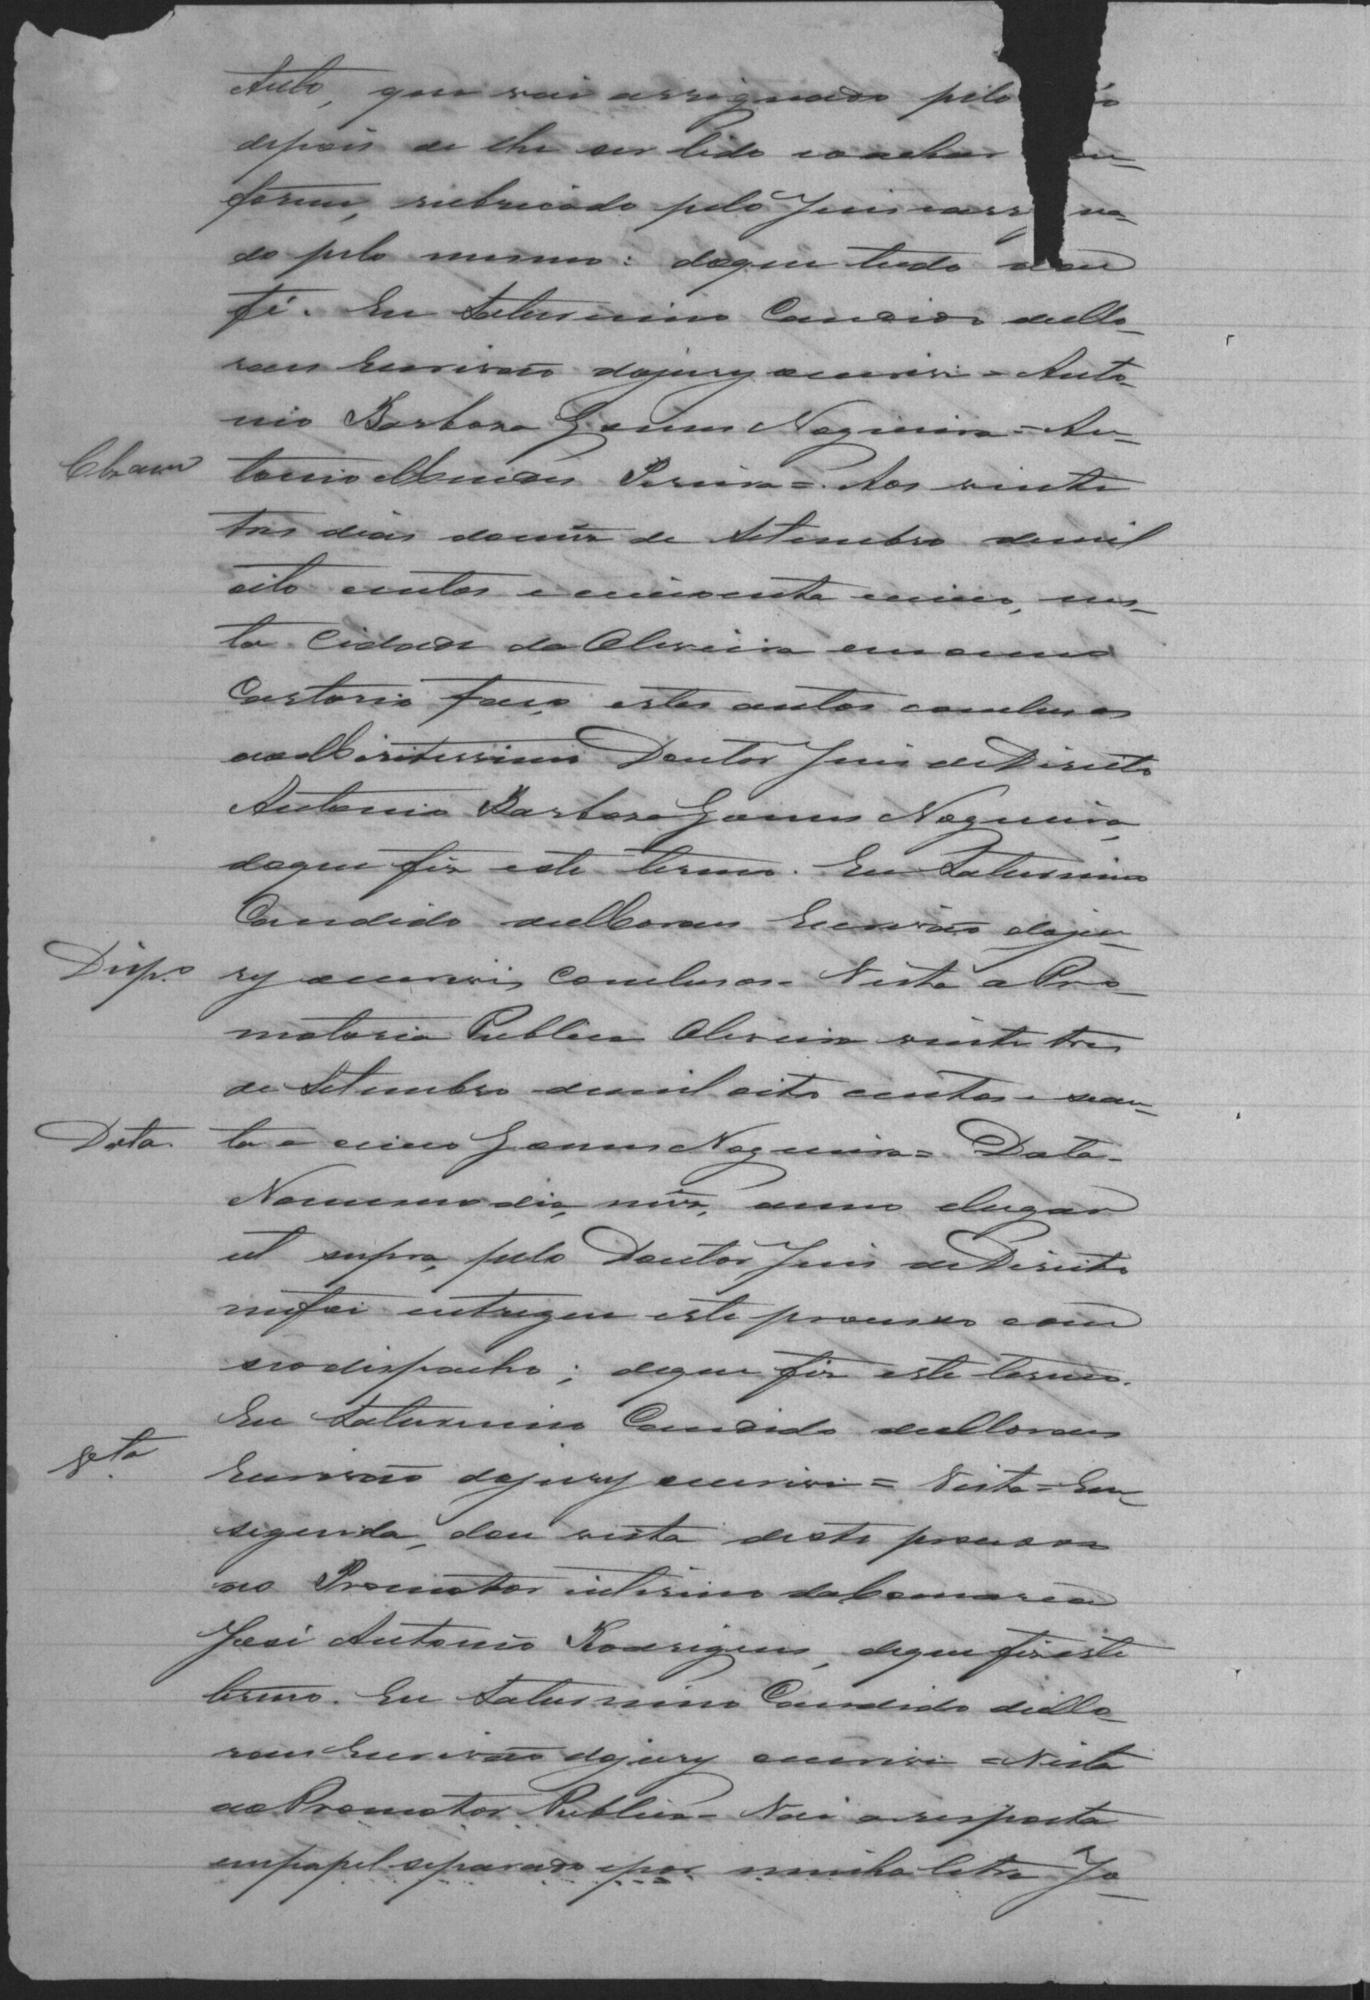 Auto, que vai assignado pelo
depois de lhe ser lido e o achar
forme, rubricado pelo Juis e assig na-
do pelo mesmo: do que tudo dou
fé. Eu Saturnino Candido de Mo-
raes Escrivão do jury o escrivi = Anto-
nio Barbosa Gomes Nogueira = An-
tonio Mendes Pereira = Aos vinte
Clzam
tres dias do mez de Setembro de mil
oito centos e cincoenta e cinco, nes-
ta Cidade da Oliveira em o meu
Cartorio faço estes autos conclusos
ao Meritissimo Doutor Juis de Direito
Antonio Barbosa Gomes Nogueira,
do que fiz este termo. Eu Saturnino
Candido de Moraes Escrivão do ju-
Disp.o
ry o escrivi, Conclusos = Vista a Pro-
motoria Publica Oliveira vinte tres
de Setembro de mil oito centos e
Data
ta e cinco Gomes Nogueira = Data -
No mesmo dia, mez, anno e lugar
ut supra, pelo Doutor Juis de Direito
me foi entregue este processo com
seo dispacho; do que fiz este termo.
Eu Saturnino Candido de Moraes
Escrivão do jury o escrivi = Vista = Em
seguida, dou vista deste processo
ao Promotor interino da Comarca
José Antonio Rodrigues, do que fiz este
termo. Eu Saturnino Candido de Mo-
raes Escrivão do jury o escrivi = Vista
ao Promotor Publico = Vai a resposta
em papel separado e por minha letra Jo-